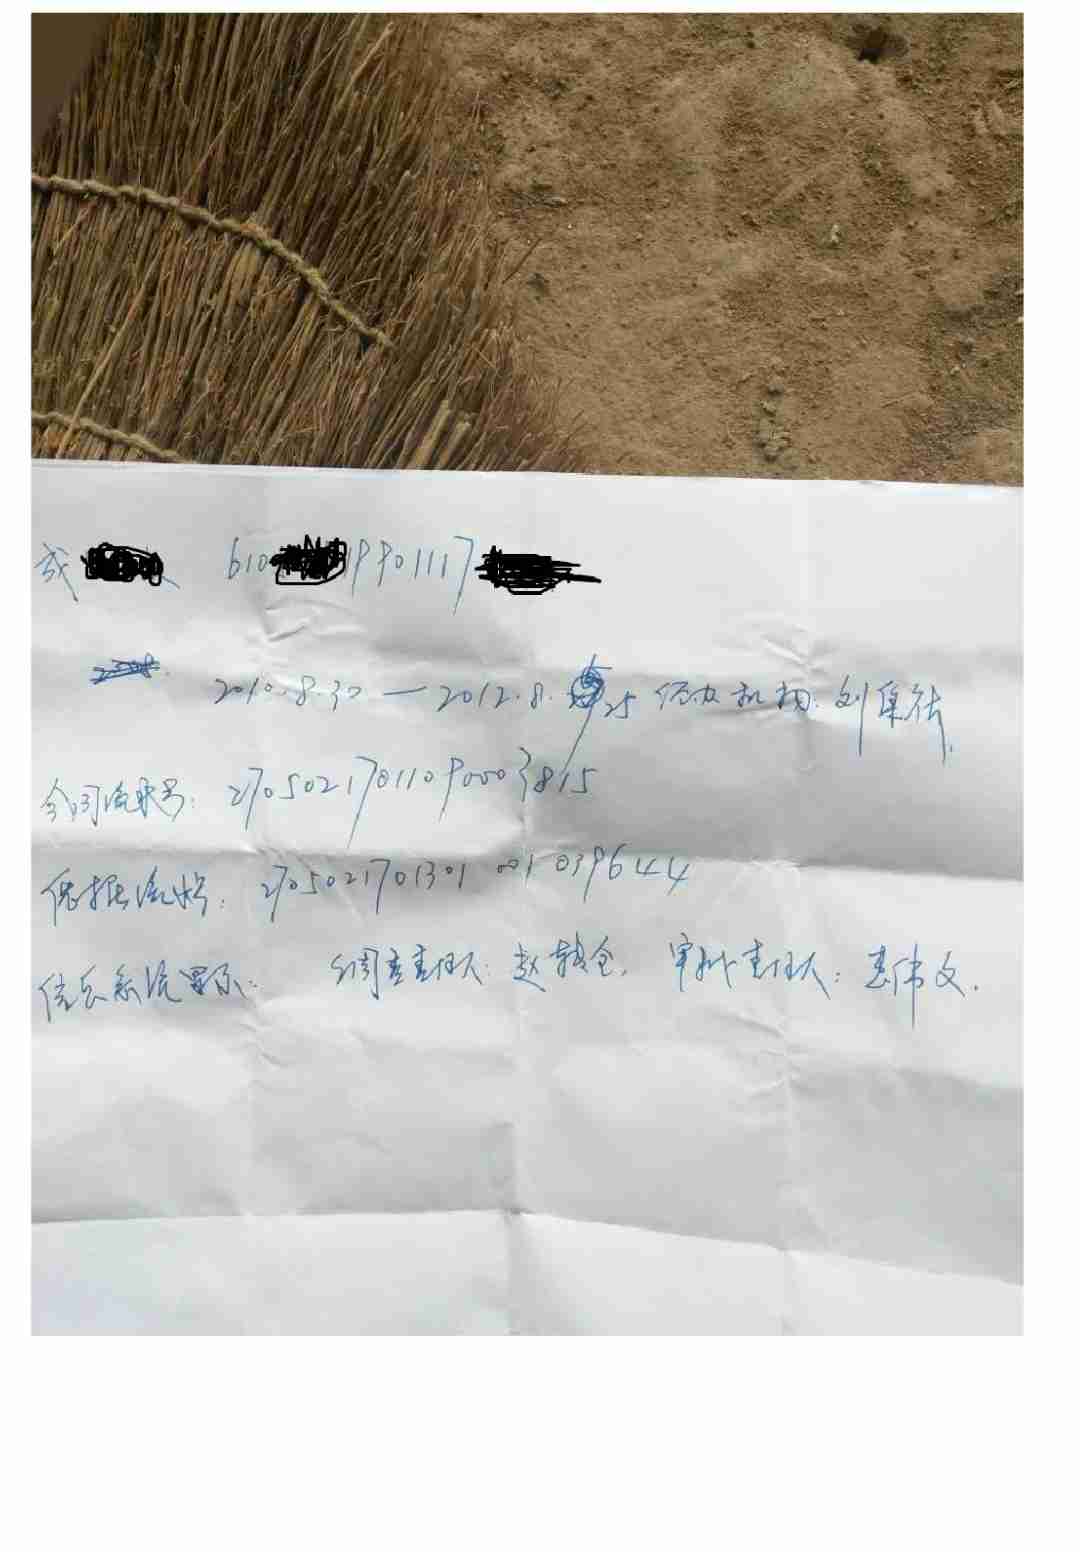 610 19901117
2010.8.30 — 2012.8.25 经办机构: 刘集社
合同流水号: 27050217011090003815
依据流水号: 2705021701301001039644
信贷系统显示: 调查责任人: 赵钱仓. 审批责任人: 惠伟文.